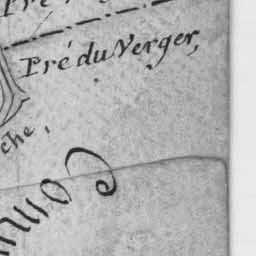 Pré
Pré du Verger,
che,